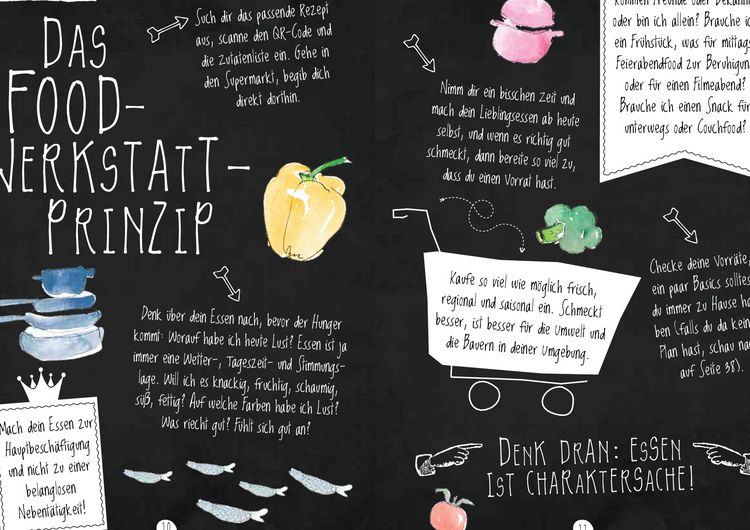 DAS
FOOD-
WERKSTATT-
PRINZIP
Such dir das passende Rezept
aus, scanne den QR-Code und
die Zutatenliste ein. Gehe in
den Supermarkt, begib dich
direkt dorthin.
Denk über dein Essen nach, bevor der Hunger
kommt: Worauf habe ich heute Lust? Essen ist ja
immer eine Wetter-, Tageszeit- und Stimmungs-
lage. Will ich es knackig, fruchtig, schaumig,
süß, fettig? Auf welche Farben habe ich Lust?
Was riecht gut? Fühlt sich gut an?
Mach dein Essen zur
Hauptbeschäftigung
und nicht zu einer
belanglosen
Nebentätigkeit!
10
kommen Freunde oder Bekannte
oder bin ich allein? Brauche ich
ein Frühstück, was für mittags,
Feierabendfood zur Beruhigung
oder für einen Filmeabend?
Brauche ich einen Snack für
unterwegs oder Couchfood?
Nimm dir ein bisschen Zeit und
mach dein Lieblingsessen ab heute
selbst, und wenn es richtig gut
schmeckt, dann bereite so viel zu,
dass du einen Vorrat hast.
Kaufe so viel wie möglich frisch,
regional und saisonal ein. Schmeckt
besser, ist besser für die Umwelt und
die Bauern in deiner Umgebung.
Checke deine Vorräte,
ein paar Basics solltest
du immer zu Hause ha-
ben (falls du da keinen
Plan hast, schau nach
auf Seite 38).
DENK DRAN: ESSEN
IST CHARAKTERSACHE!
11